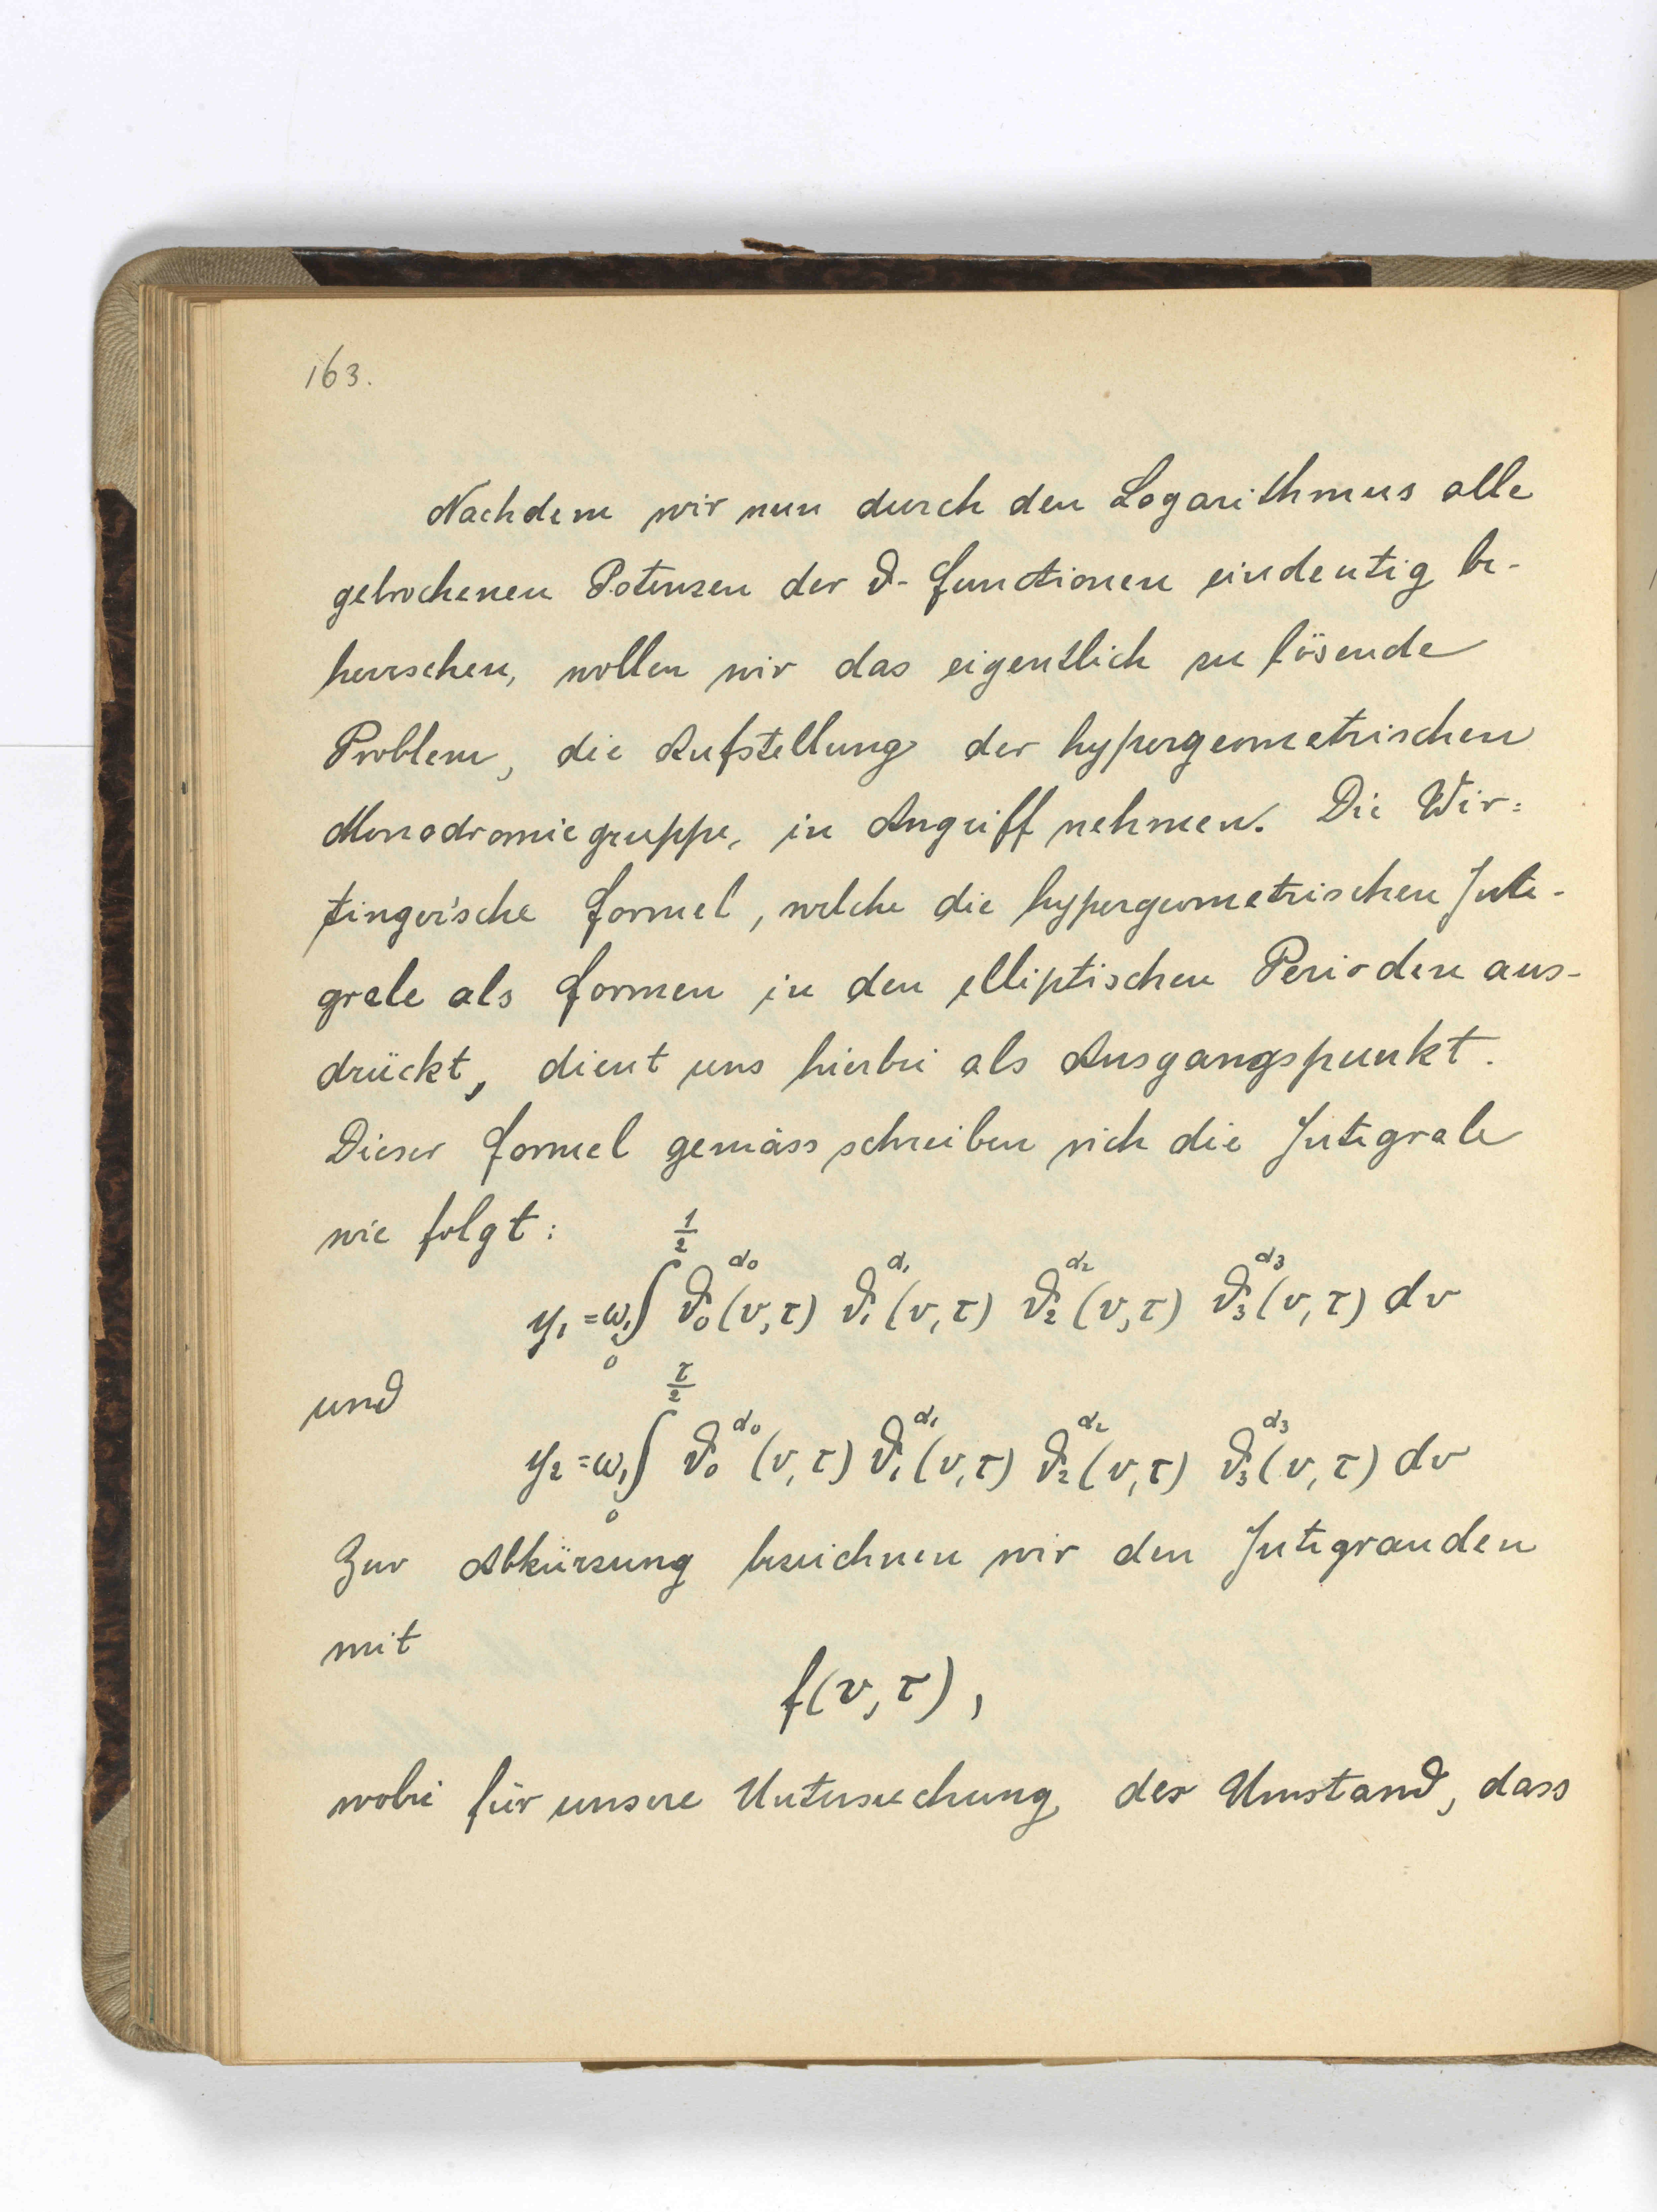 163.
Nachdem wir nun durch den Logarithmus alle
gebrochenen Potenzen der ϑ-Functionen eindeutig be-
herrschen, wollen wir das eigentlich zu lösende
Problem, die Aufstellung der hypergeometrischen
Monodromiegruppe, in Angriff nehmen. Die Wir=
tinger'sche Formel, welche die hypergeometrischen Inte-
grale als Formen in den elliptischen Perioden aus-
drückt, dient uns hierbei als Ausgangspunkt.
Dieser Formel gemäss schreiben sich die Integrale
wie folgt:
y₁ = ω₁ ∫₀^{1/2} ϑ₀^{α₀}(v,τ) ϑ₁^{α₁}(v,τ) ϑ₂^{α₂}(v,τ) ϑ₃^{α₃}(v,τ) dv
und
y₂ = ω₁ ∫₀^{τ/2} ϑ₀^{α₀}(v,τ) ϑ₁^{α₁}(v,τ) ϑ₂^{α₂}(v,τ) ϑ₃^{α₃}(v,τ) dv
Zur Abkürzung bezeichnen wir den Integranden
mit
f(v,τ),
wobei für unsere Untersuchung der Umstand, dass